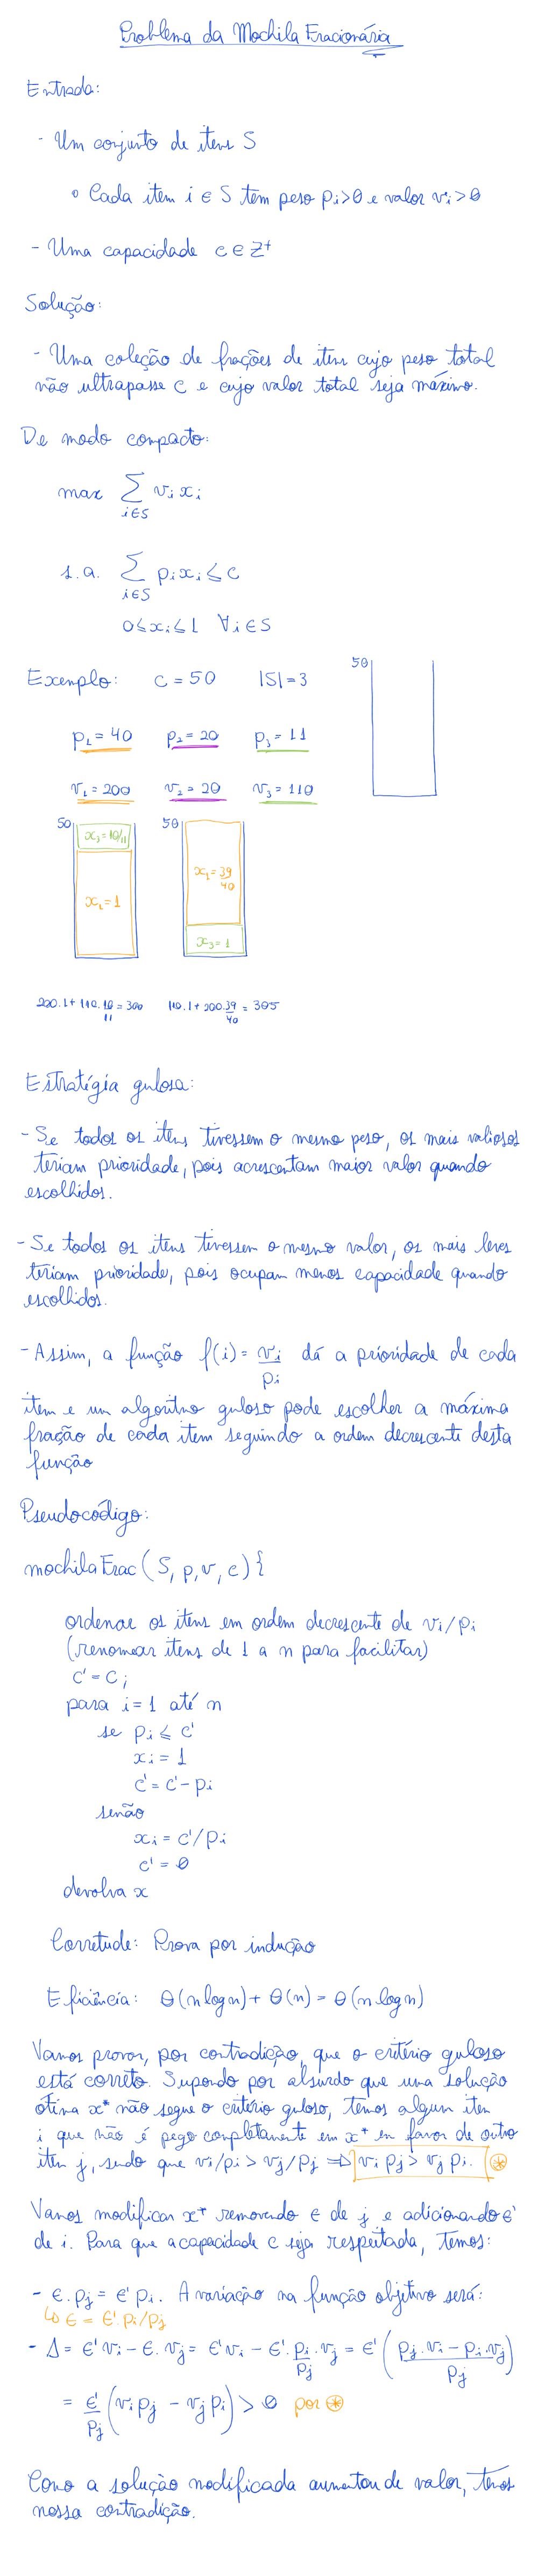 Problema da Mochila Fracionária
Entrada:
- Um conjunto de itens S
o Cada item i ∈ S tem peso pi>0 e valor vi>0
- Uma capacidade c ∈ Z⁺
Solução:
- Uma coleção de frações de itens cujo peso total
não ultrapasse c e cujo valor total seja máximo.
De modo compacto:
max Σ vi xi
i∈S
s.a. Σ pi xi ≤ c
i∈S
0≤xi≤1 ∀i∈S
Exemplo: c = 50 |S|=3
50
p1 = 40 p2 = 20 p3 = 11
v1 = 200 v2 = 20 v3 = 110
50 x3 = 10/11 50
x1 = 39/40
x1 = 1
x3 = 1
200.1 + 110.10/11 = 300 110.1 + 200.39/40 = 305
Estratégia gulosa:
- Se todos os itens tivessem o mesmo peso, os mais valiosos
teriam prioridade, pois acrescentam maior valor quando
escolhidos.
- Se todos os itens tivessem o mesmo valor, os mais leves
teriam prioridade, pois ocupam menos capacidade quando
escolhidos.
- Assim, a função f(i) = vi/pi dá a prioridade de cada
item e um algoritmo guloso pode escolher a máxima
fração de cada item seguindo a ordem decrescente desta
função
Pseudocódigo:
mochilaFrac(S, p, v, c){
ordenar os itens em ordem decrescente de vi/pi
(renomear itens de 1 a n para facilitar)
c' = c;
para i = 1 até n
se pi ≤ c'
xi = 1
c' = c' - pi
senão
xi = c'/pi
c' = 0
devolva x
Corretude: Prova por indução
Eficiência: Θ(n log n) + Θ(n) = Θ(n log n)
Vamos provar, por contradição, que o critério guloso
está correto. Supondo por absurdo que uma solução
ótima x* não segue o critério guloso, temos algum item
i que não é pego completamente em x* em favor de outro
item j, sendo que vi/pi > vj/pj ⇒ vi pj > vj pi. ⊛
Vamos modificar x* removendo ε de j e adicionando ε'
de i. Para que a capacidade c seja respeitada, temos:
- ε.pj = ε' pi. A variação na função objetivo será:
↳ ε = ε'.pi/pj
- Δ = ε' vi - ε.vj = ε' vi - ε'.pi/pj.vj = ε'(pj.vi - pi.vj / pj)
= ε'/pj (vi pj - vj pi) > 0 por ⊛
Como a solução modificada aumentou de valor, temos
nossa contradição.